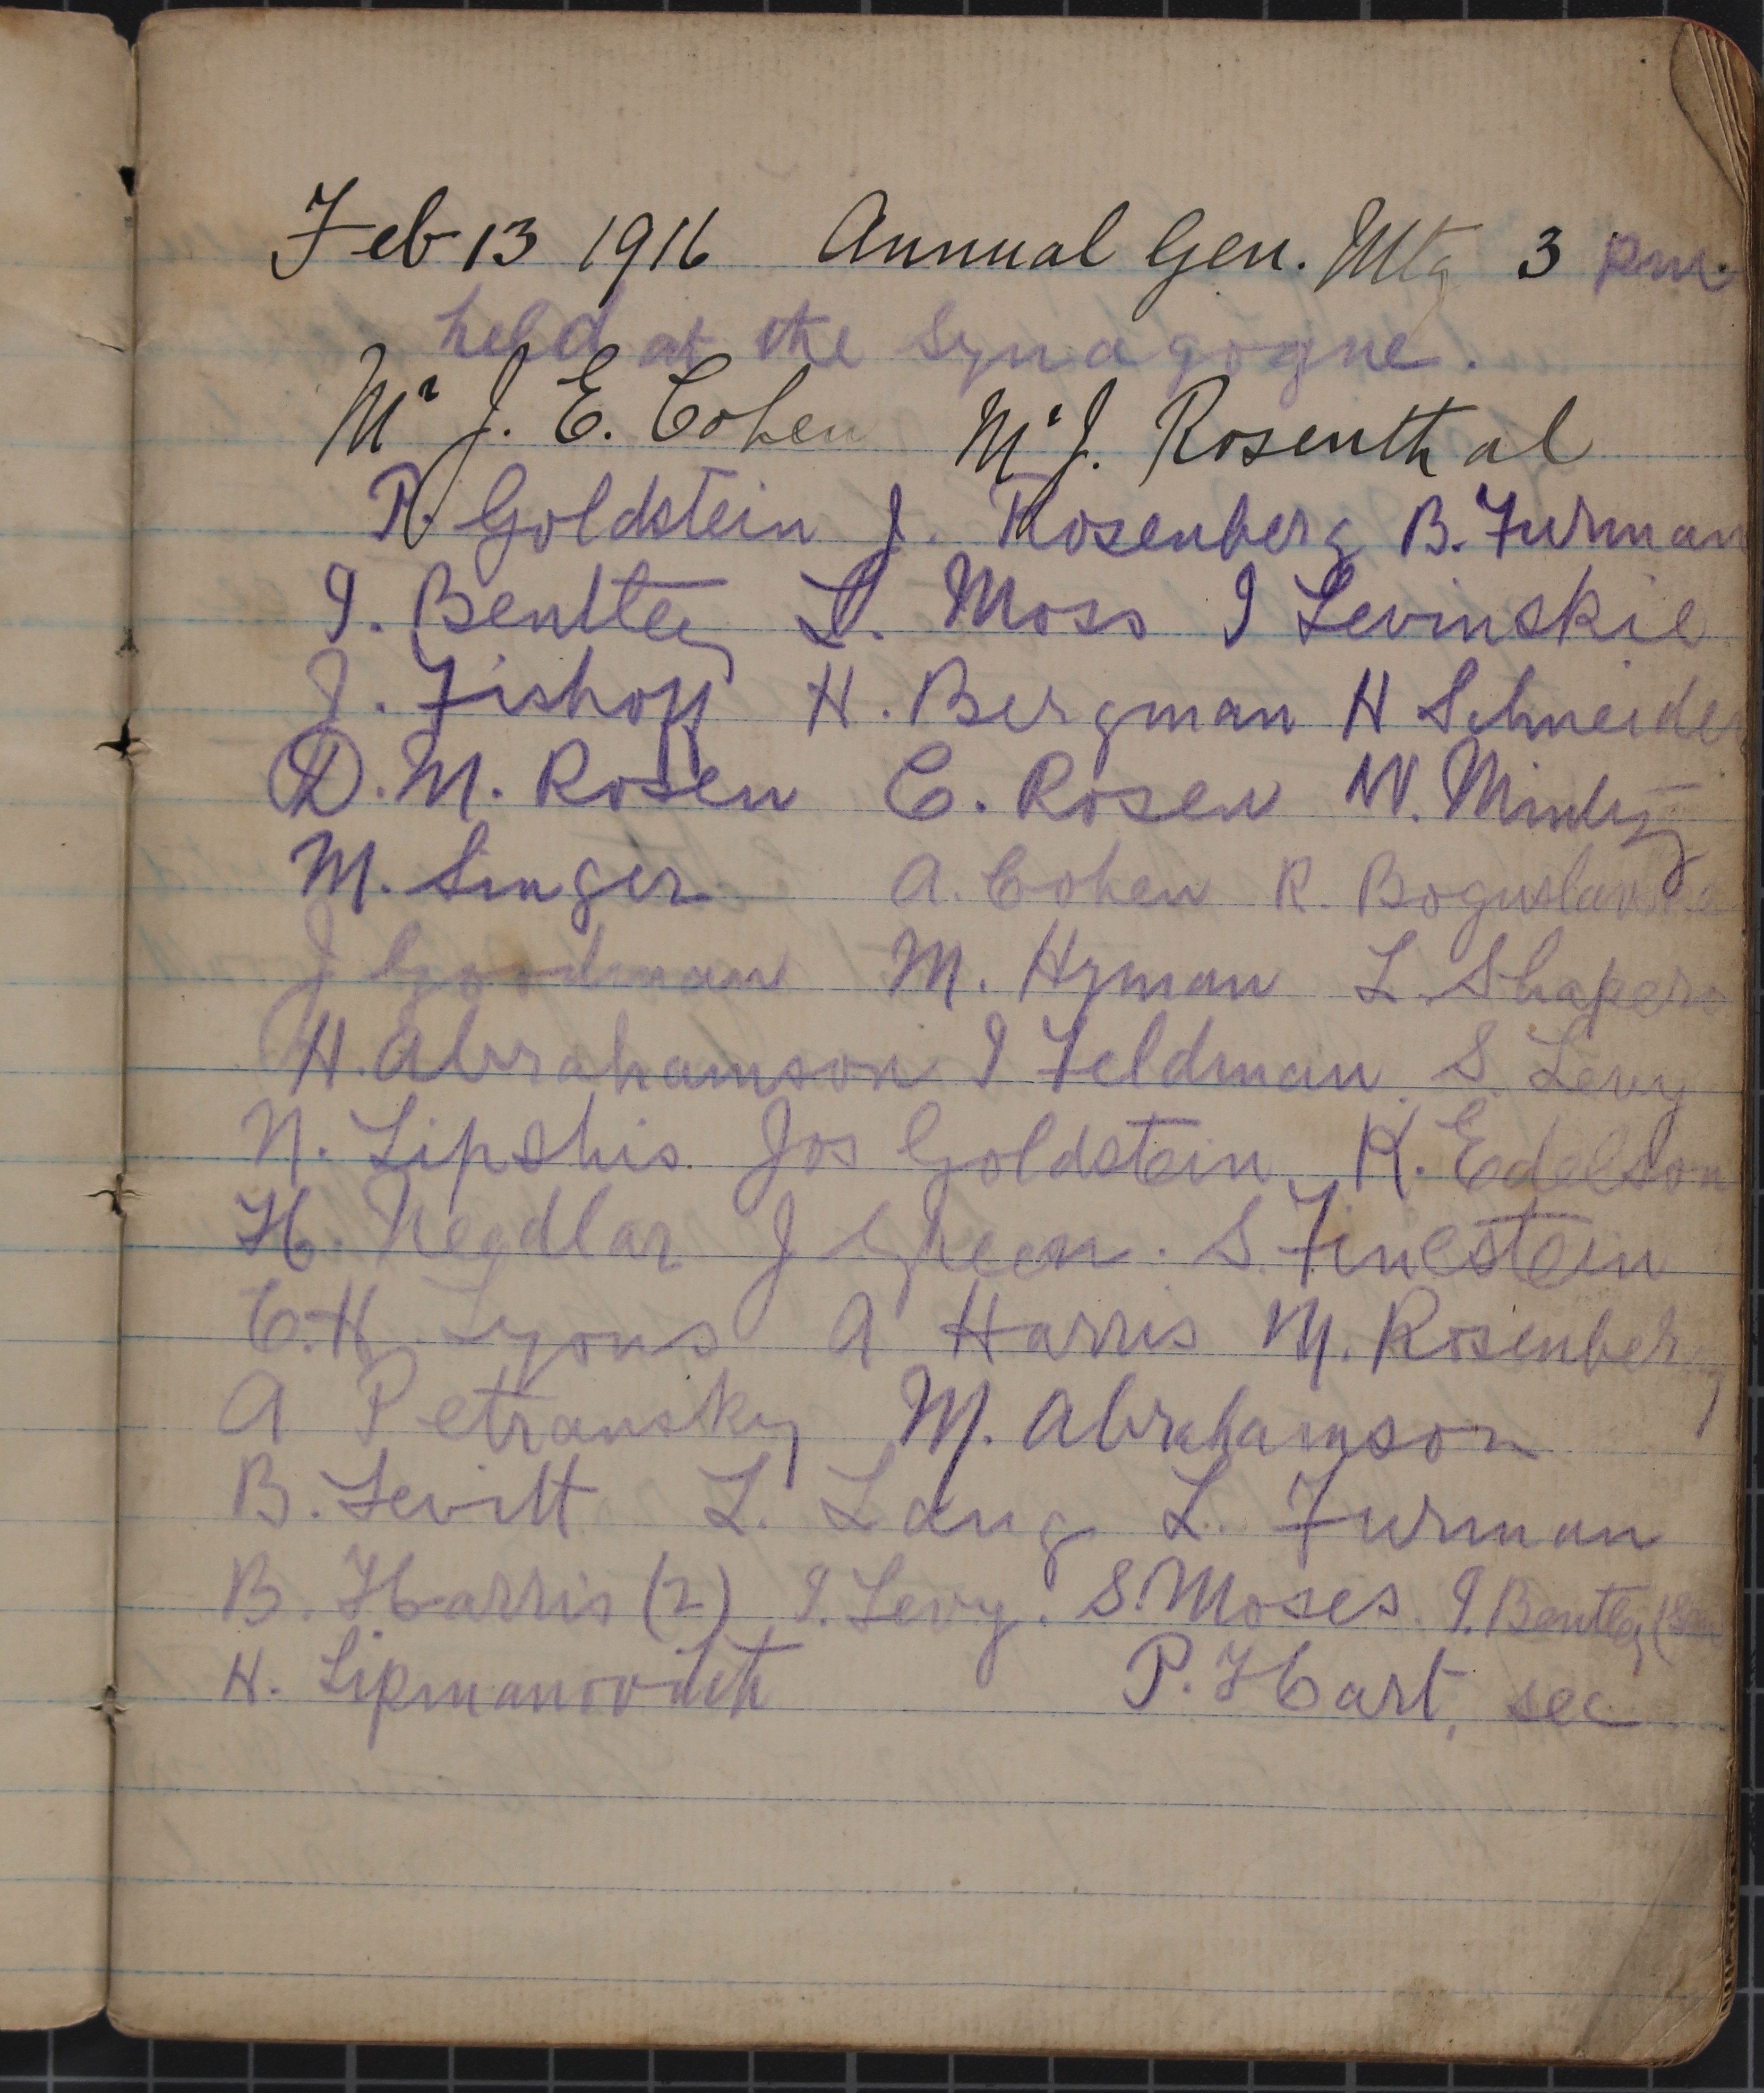 Feb 13 1916 Annual Gen. Mtg 3 Pm.
held at the Synagogue.
Mr J. E. Cohen Mr J. Rosenthal
P. Goldstein J. Rosenberg B. Furman
I. Bentley L. Moss I Levinskie
J. Fishoff H. Bergman H Schneider
D. M. Rosen C. Rosen W.
M. Singer A. Cohen R.
J Goodman M. Hyman L. Shapero
H. Abrahamson I Feldman. S. Levy
N. Lipshis. Jos Goldstein K. Edelson
H. Needlar J Green. S. Finestein
E. H. Lyons A Harris M. Rosenberg
A Petransky M. Abrahamson
B. Levitt L. Lang L. Furman
B. Harris (2) I. Levy. S. Moses. I. Bentley (Sen
H. Lipmanovitch P. Hart, sec